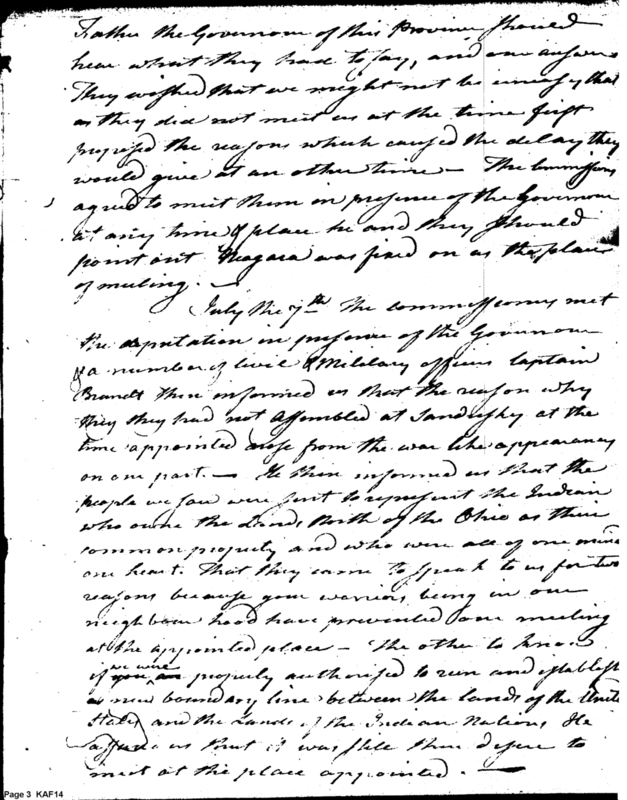 Father the Governour of this Province should
hear what they had to say, and our answer
They wished that we might not be uneasy that
as they did not meet us at the time first
proposed the reasons which caused the delay they
would give at an other time — The Commissioners
agreed to meet them in presence of the Governour
at any time & place he and they should
point out Niagara was fixed on as the place
of meeting. —
July the 7th The commissioners met
the deputation in presence of the Governour
& a number of Civil & Military officers Captain
Brandt then informed us that the reason why
they they had not Assembled at Sandusky at the
time appointed arose from the war like appearances
on our part. — He then informed us that the
people we saw were sent to represent the Indian
who owne the Lands North of the Ohio as their
common property and who were all of one mind
one heart. That they came to speak to us for two
reasons because your warriors being in our
neighbour hood have prevented our meeting
at the appointed place — The other to know
if you are we were properly authorised to run and establish
a new boundary line between the lands of the United
States and the Lands of the Indian Nations, He
assured us that it was still their desire to
meet at the place appointed. —
Page 3 KAF14